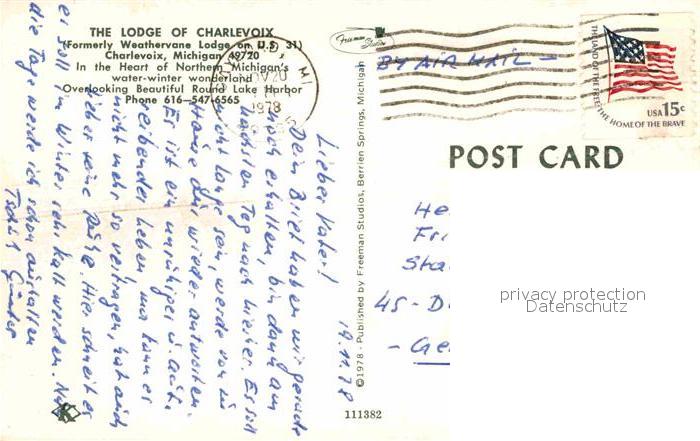 THE LODGE OF CHARLEVOIX
(Formerly Weathervane Lodge on U.S. 31)
Charlevoix, Michigan 49720
In the Heart of Northern Michigan's
water-winter wonderland
Overlooking Beautiful Round Lake Harbor
Phone 616-547-6565
MI
NOV 20
1978
Freeman Studios
BY AIR MAIL
THE LAND OF THE FREE THE HOME OF THE BRAVE
USA 15c
POST CARD
19.11.78
Lieber Vater!
Dein Brief haben wir gerade
noch erhalten, bin dann am
nächsten Tag nach hierher. Es soll
nicht lange sein, werde von zu
Hause Dir wieder antworten.
Es ist ein unruhiges u.
Leben man kann es
nicht mehr so vertragen, hat auch
lieber seine Ruhe. Hier schneit es
er soll im Winter sehr kalt werden. Na
die Tage werde ich schon aushalten
Tschüß Günter
©1978 - Published by Freeman Studios, Berrien Springs, Michigan
He
Fri
Sta
45-D
- Ge
privacy protection
Datenschutz
K
111382